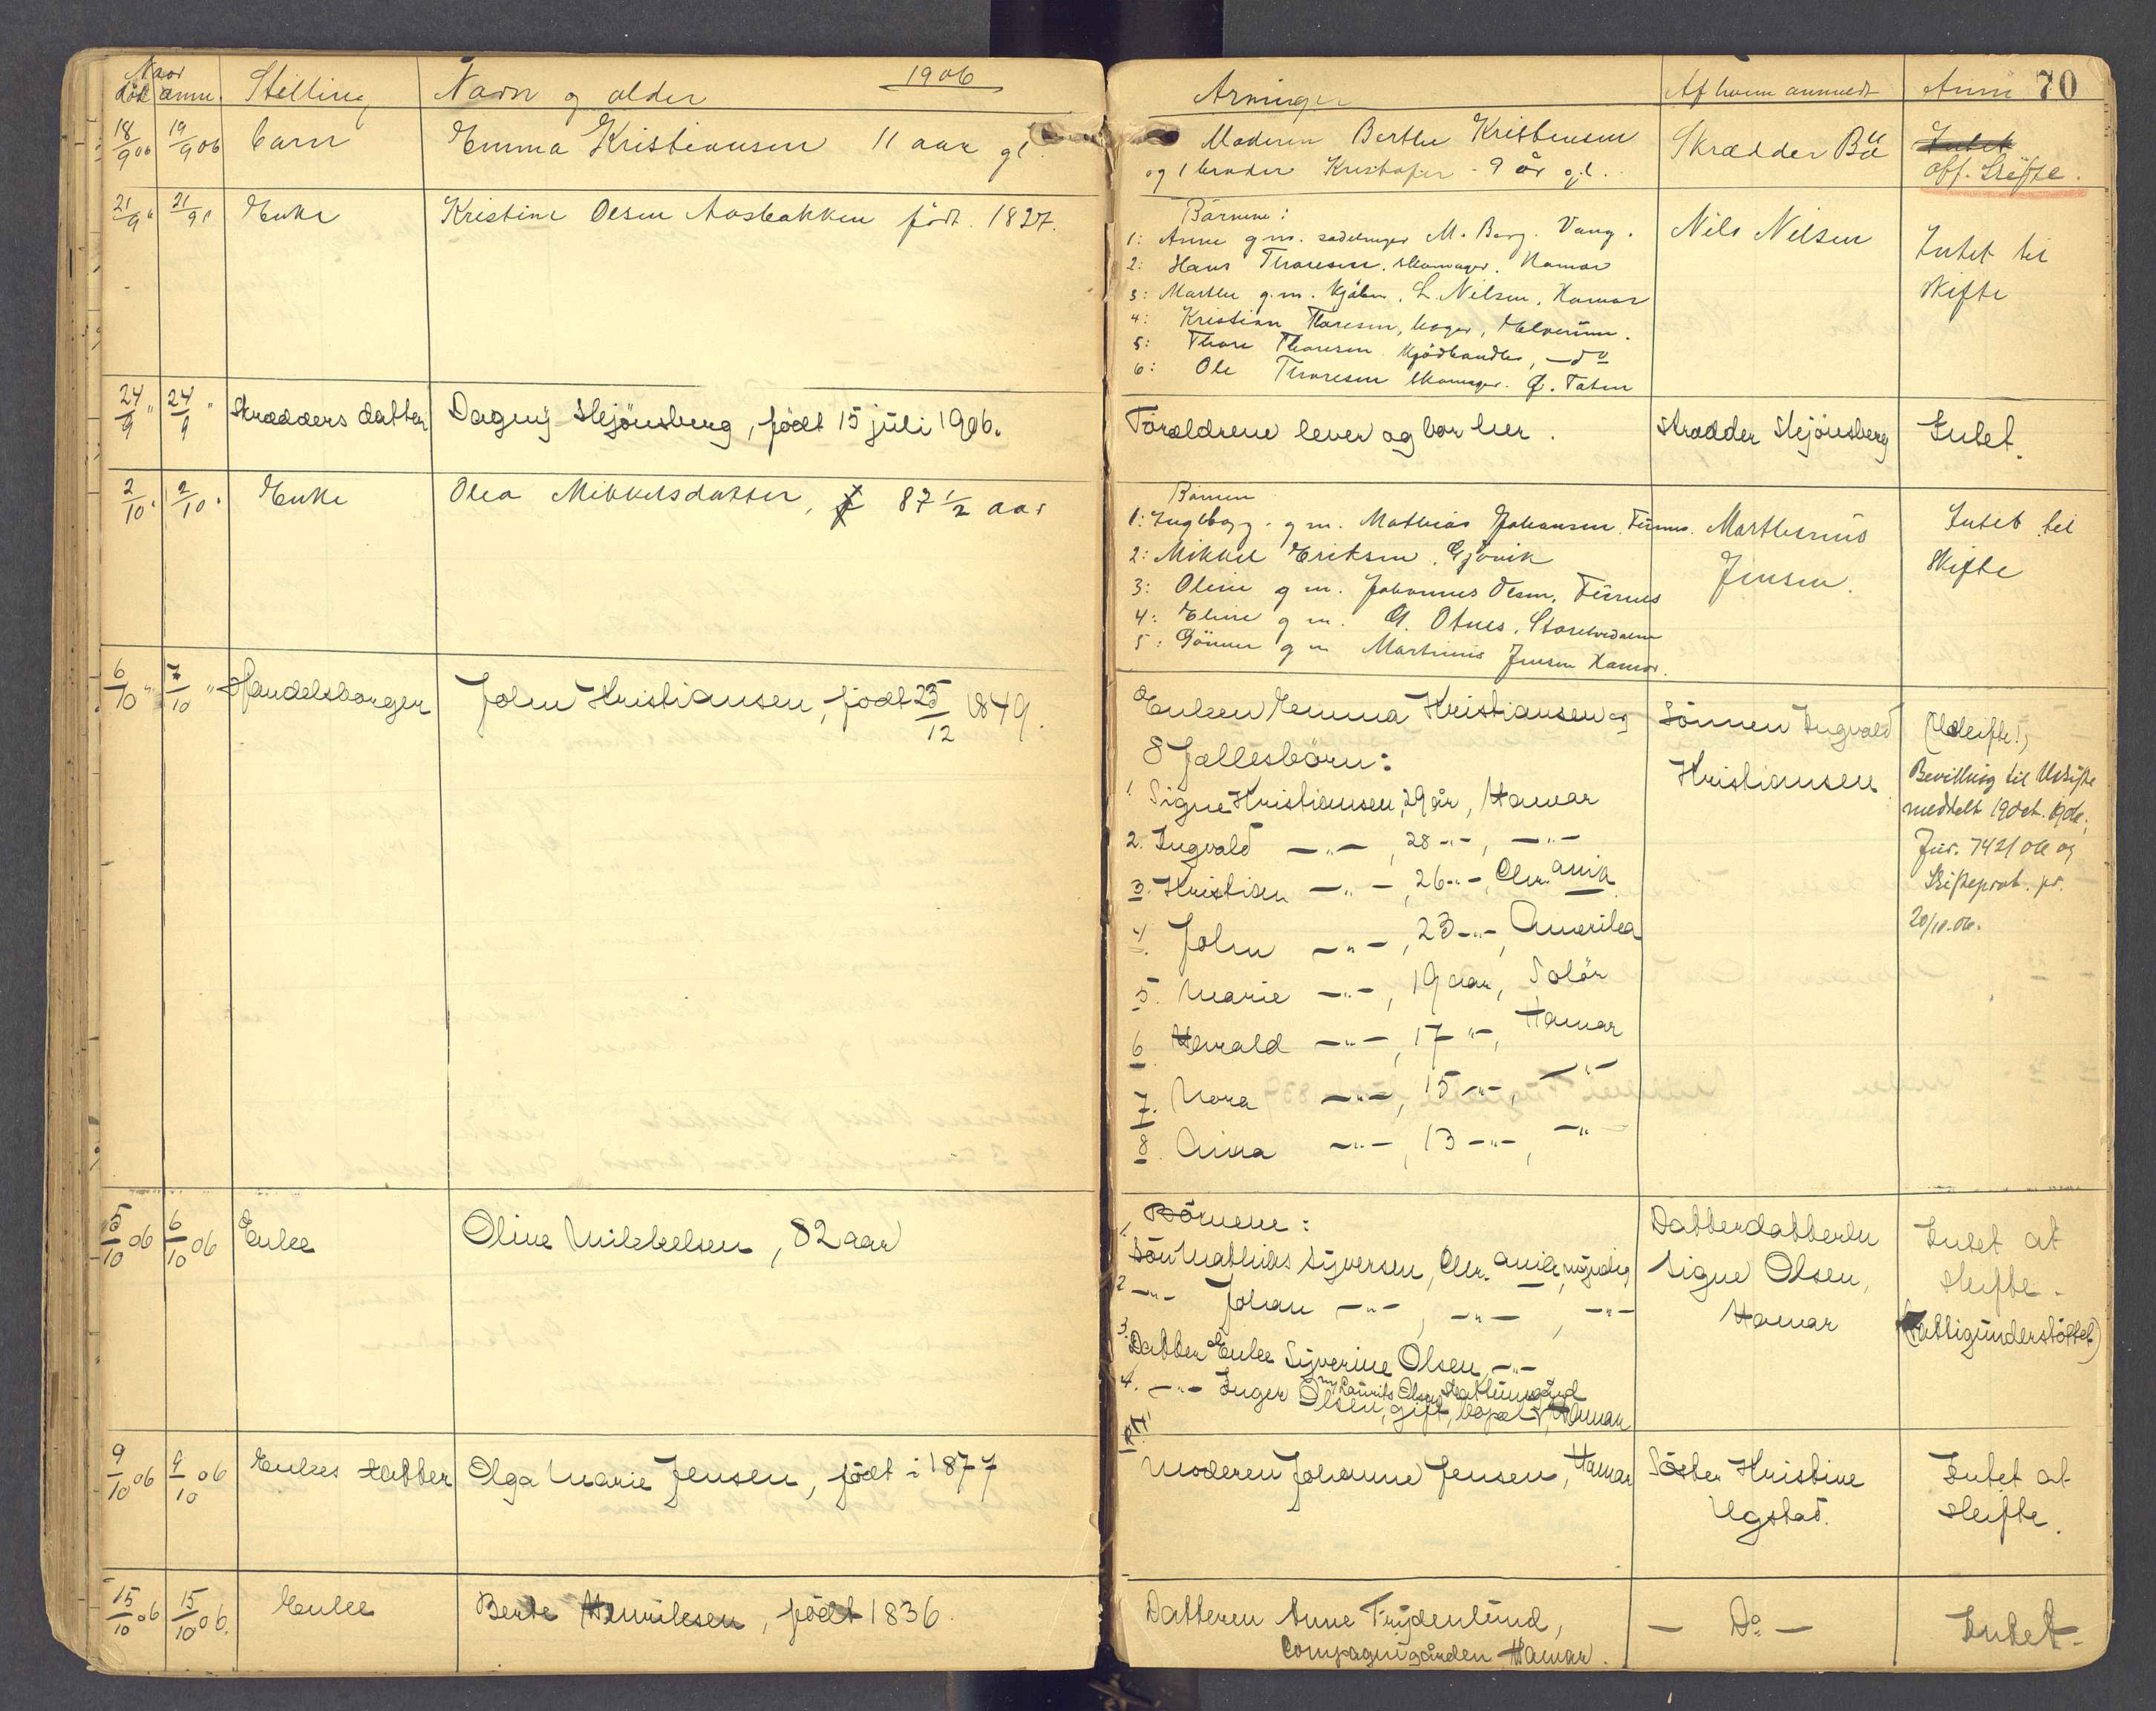 Naar
død anm. Stilling Navn og alder 1906 Arvinger Af hvem anmeldt Anm 70
18/9 06 19/9 06 barn Emma Kristiansen 11 aar gl. Moderen Berthe Kristensen
og 1 broder Kristofer - 9 år gl. Skrædder Bü Intet
off. Skifte.
21/9 " 21/9 " Enke Kristine Olsen Aasbakken født. 1827.
Børnene:
1: Anne g.m. sadelmager M. Berg. Vang.
2: Hans Thoresen. skomager. Hamar
3: Marthe g.m. Kjøbm. L. Nilsen, Hamar
4: Kristian Thoresen, bager, Elverum.
5: Thore Thoresen. Kjødhandler, — do
6: Ole Thoresen skomager. Ø. Toten
Nils Nilsen
Intet til
skifte
24/9 " 24/9 " Skrædders datter Dagny Skjønsberg, født 15 juli 1906.
Forældrene lever og bor her. skrædder Skjønsberg Intet.
2/10 " 2/10 " Enke Olea Mikkelsdatter, 87 1/2 aar
Børnene
1: Ingeborg g.m. Mathias Johansen. Furnes.
2: Mikkel Eriksen. Gjøvik
3: Oline g m. Johannes Olsen, Furnes
4: Eline g m. A. Otnes, Storelvedalen
5: Gønner g m Martinius Jensen Hamar.
Marthinius
Jensen.
Intet til
skifte
6/10 " 7/10 " Handelsborger John Kristiansen, født 25/12 1849.
Enken Emma Kristiansen og
8 fællesbørn:
1. Signe Kristiansen, 29 år, Hamar
2. Ingvald —"— , 28 -"-, —"—
3. Kristian —"— , 26 -"-, Chr.ania
4. John —"— , 23 -"-, Amerika
5. Marie —"— , 19 aar, Solør
6. Harald —"— , 17 -"-, Hamar
7. Nora —"— , 15 -"-, —"—
8. Anna —"— , 13 -"-, —"—
Sønnen Ingvald
Kristiansen
(Uskifte!)
Bevilling til Uskifte
meddelt 19 Oct. 1906,
Jur. 742/06 og
Skifteprot. pr.
20/10.06.
5/10 06 6/10 06 Enke Oline Mikkelsen, 82 aar
Børnene:
1. Søn Mathias Syversen, Chr.ania, myndig
2. -"- Johan —"— , —"— , —"—
3. Datter Enke Syverine Olsen, —"—
4. -"- Inger Olsen, gift m. Laurits Olsen, Hamar
Datterdatteren
Signe Olsen,
Hamar
Intet at
skifte.
(Fattigunderstøttet)
9/10 06 9/10 06 Enkes datter Olga Marie Jensen, født i 1877
Moderen Johanne Jensen, Hamar Søster Kristine
Ugstad.
Intet at
skifte.
15/10 06 15/10 06. Enke Berte Henriksen, født 1836.
Datteren Anne Frydenlund,
Compagnigården Hamar.
— Do —
Intet.